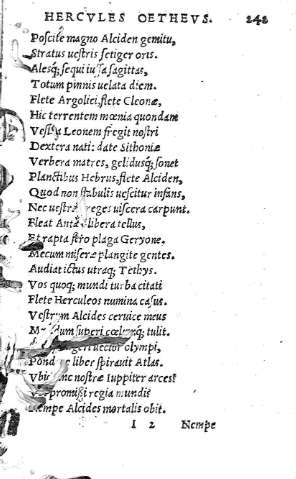 HERCVLES OETHEVS. 242
Poscite magno Alciden gemitu,
Stratus uestris setiger oris.
Alesq; sequi sagittas,
Totum pinnis uelata diem.
Flete Argolici, flete Cleonæ,
Hic terrentem mœnia quondam
Leonem fregit nostri
Dextera nati: date Sithoniæ
Verbera matres, gelidusq; sonet
Planctibus Hebrus, flete Alciden,
Quod non stabulis uescitur infans,
Nec uestri reges uiscera carpunt.
Fleat libera tellus,
Et rapta plaga Geryone.
Mecum miseræ plangite gentes.
Audiat ictus utraq; Tethys.
Vos quoq; mundi turba citati
Flete Herculeos numina casus.
Vestrum Alcides ceruice meus
superi tulit.
uector olympi,
liber spirauit Atlas.
nostræ Iuppiter arcest
regia mundi?
Nempe Alcides mortalis obit.
I 2 Nempe